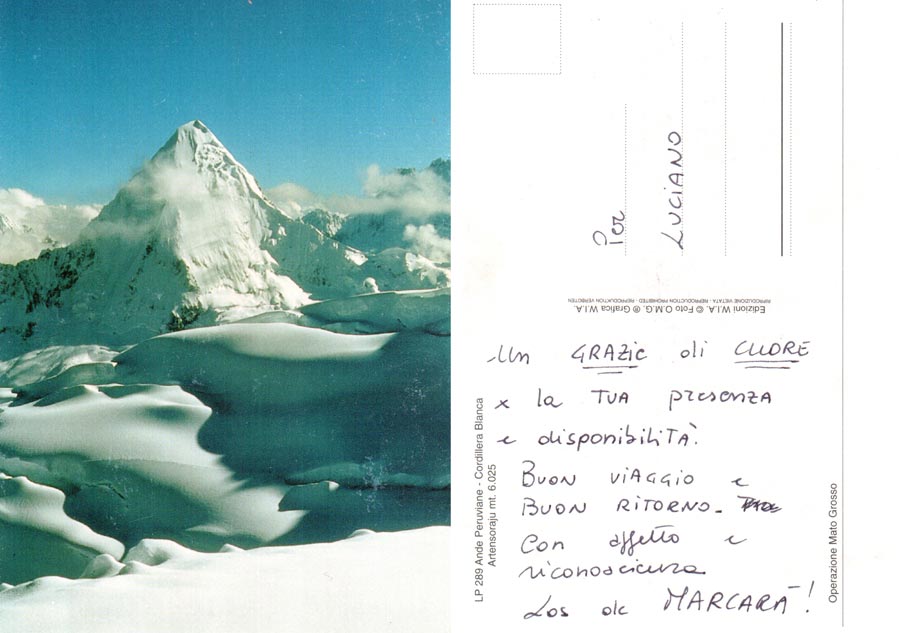 Per
LUCIANO
Edizioni W.I.A. © Foto O.M.G. ® Grafica W.I.A.
RIPRODUZIONE VIETATA - REPRODUCTION PROHIBITED - REPRODUKTION VERBOTEN
LP 289 Ande Peruviane - Cordillera Bianca
Artensoraju mt. 6.025
Un GRAZIE di CUORE
x la TUA presenza
e disponibilITÀ.
BUON VIAGGIO e
BUON RITORNO.
Con affetto e
riconoscienza
Los de MARCARÀ!
Operazione Mato Grosso